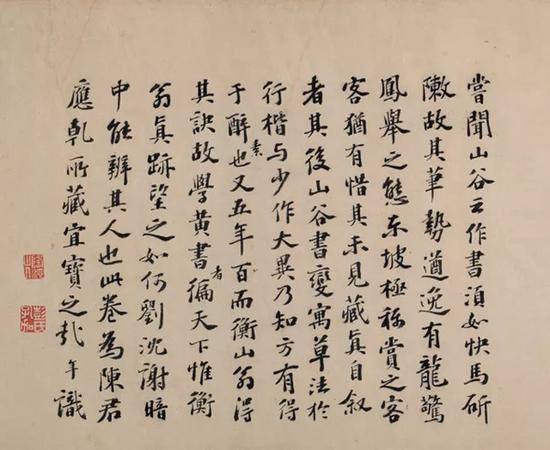 嘗聞山谷云作書須如快馬斫
敶故其筆勢遒逸有龍驚
鳳舉之態東坡極稱賞之客
客猶有惜其未見藏真自叙
者其後山谷書變寓草法於
行楷与少作大異乃知方有得
于醉素也又五年百而衡山翁得
其訣故學黃書者徧天下惟衡
翁真跡望之如何劉沈謝暗
中能辨其人也此卷為陳君
應乹所藏宜寶之哉 年識
彭氏孔加